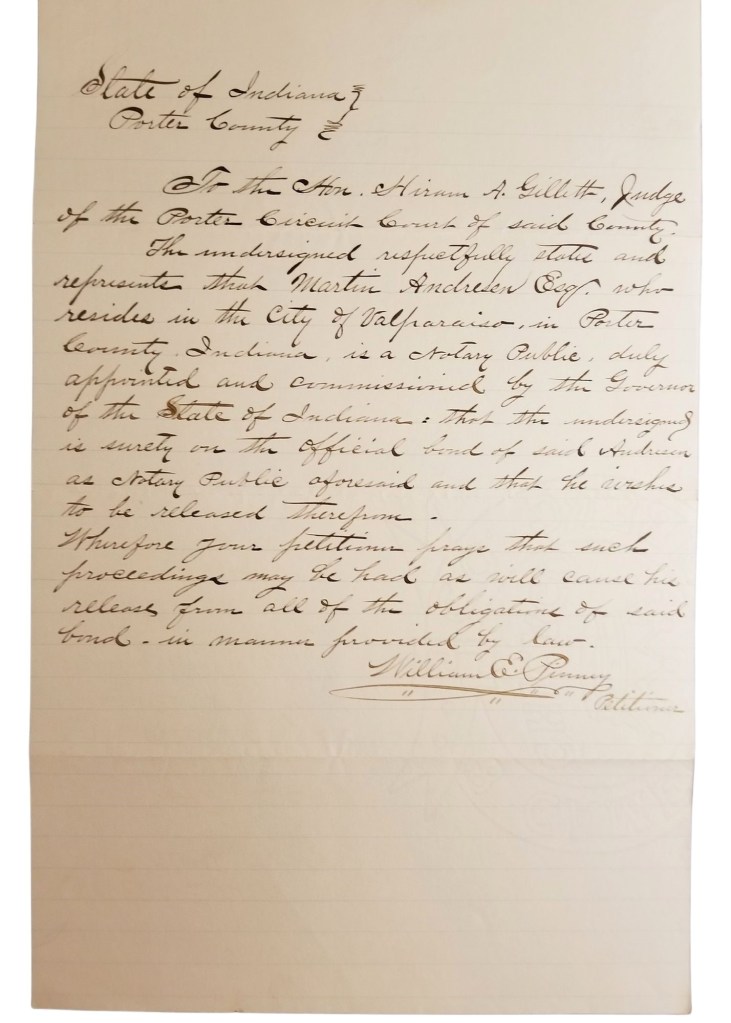 State of Indiana }
Porter County }
To the Hon. Hiram A. Gillett, Judge
of the Porter Circuit Court of said County.
The undersigned respectfully states and
represents that Martin Andresen Esq. who
resides in the City of Valparaiso, in Porter
County, Indiana, is a Notary Public, duly
appointed and commissioned by the Governor
of the State of Indiana: that the undersigned
is surety on the official bond of said Andresen
as Notary Public aforesaid and that he wishes
to be released therefrom -
Wherefore your petitioner prays that such
proceedings may be had as will cause his
release from all of the obligations of said
bond - in manner provided by law.
William E. Pinney
Petitioner